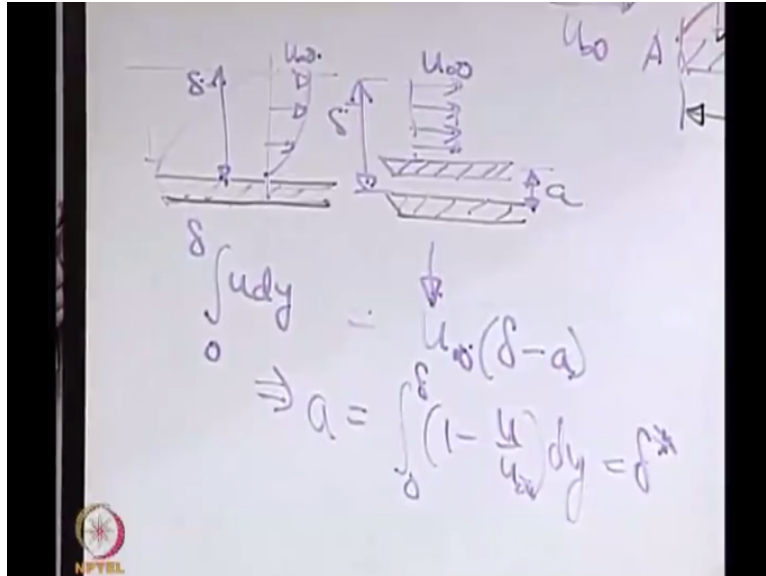 u∞ A
δ u∞
δ u∞ a
∫₀^δ u dy = u∞(δ - a)
⇒ a = ∫₀^δ (1 - u/u∞) dy = δ*
NPTEL